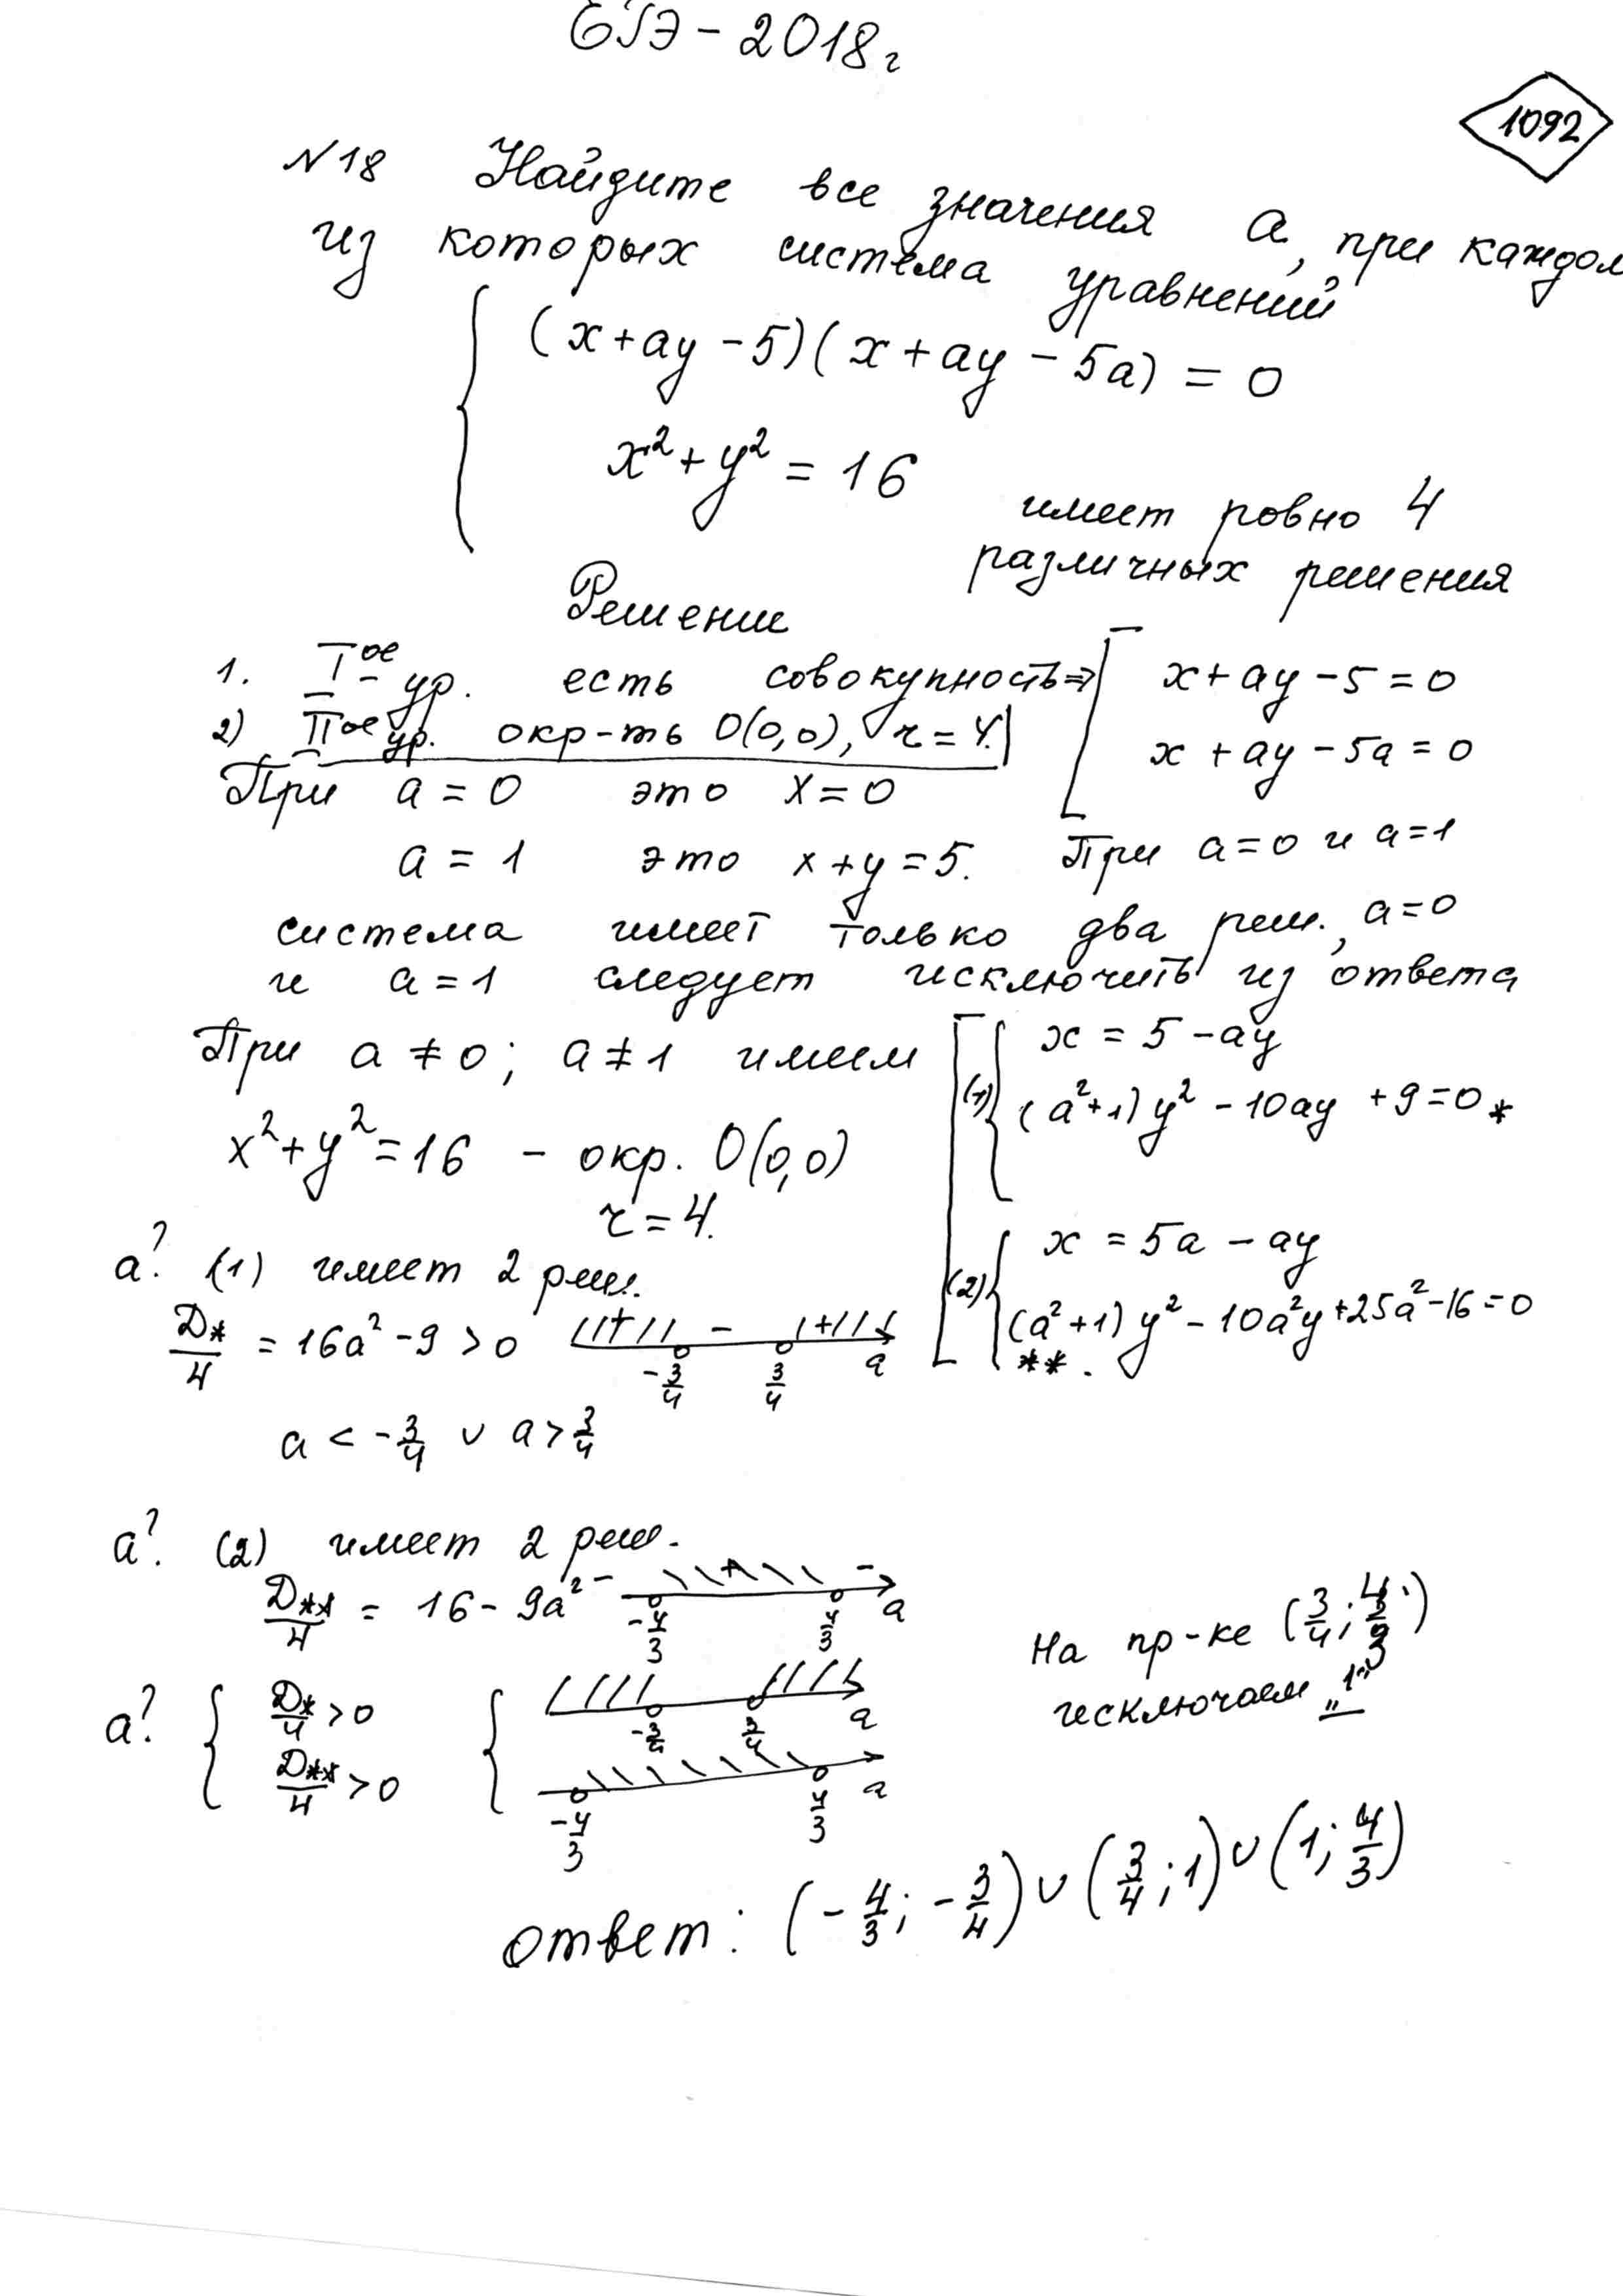 ЕГЭ - 2018г
1092
N18 Найдите все значения a, при каждом
из которых система уравнений
(x + ay - 5)(x + ay - 5a) = 0
x² + y² = 16
имеет ровно 4
различных решения
Решение
1. I-ое ур. есть совокупность ⇒ [ x + ay - 5 = 0
x + ay - 5a = 0
2) II ое ур. окр-ть O(0,0), r = 4.
При a = 0 это x = 0
a = 1 это x + y = 5. При a = 0 и a = 1
система имеет только два реш., a = 0
и a = 1 следует исключить из ответа
При a ≠ 0; a ≠ 1 имеем
(1) { x = 5 - ay
(a² + 1) y² - 10ay + 9 = 0 *
x² + y² = 16 - окр. O(0,0)
r = 4.
(2) { x = 5a - ay
(a² + 1) y² - 10a²y + 25a² - 16 = 0
** .
a? (1) имеет 2 реш.
D*/4 = 16a² - 9 > 0 + - + -3/4 3/4 a
a < -3/4 ∪ a > 3/4
a? (2) имеет 2 реш.
D**/4 = 16 - 9a² - + - -4/3 4/3 a
На пр-ке (3/4; 4/3)
исключаем „1"
a? { D*/4 > 0 { -3/4 3/4 a
D**/4 > 0 -4/3 4/3 a
ответ: (-4/3; -3/4) ∪ (3/4; 1) ∪ (1; 4/3)